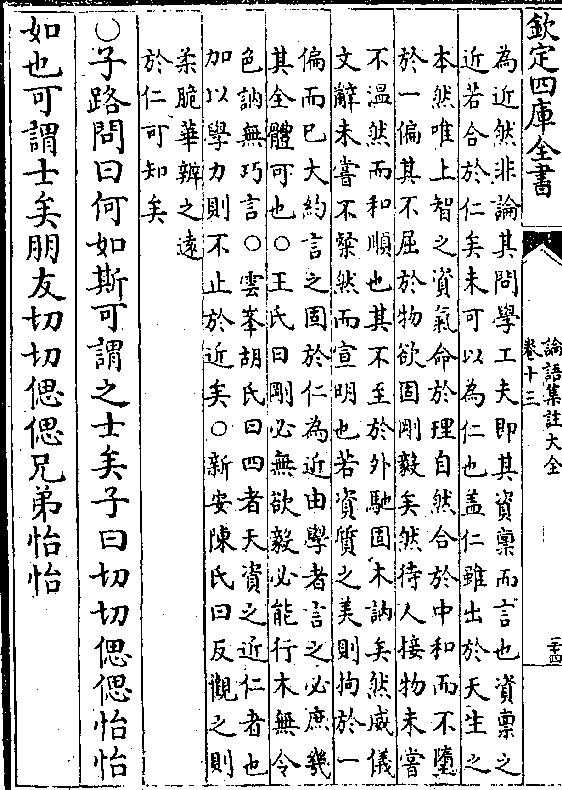 欽定四庫全書
論語集註大全
卷十三
為近然非論其問學工夫即其資稟而言也資稟之
近若合於仁矣未可以為仁也盖仁雖出於天生之
本然唯上智之資氣命於理自然合於中和而不墮
於一偏其不屈於物欲固剛毅矣然待人接物未嘗
不溫然而和順也其不至於外馳固木訥矣然威儀
文辭未嘗不粲然而宣明也若資質之美則拘於一
偏而已大約言之固於仁為近由學者言之必庶幾
其全體可也○王氏曰剛必無欲毅必能行木無令
色訥無巧言○雲峯胡氏曰四者天資之近仁者也
加以學力則不止於近矣○新安陳氏曰反觀之則
柔脆華辨之遠
於仁可知矣
○子路問曰何如斯可謂之士矣子曰切切偲偲怡怡
如也可謂士矣朋友切切偲偲兄弟怡怡